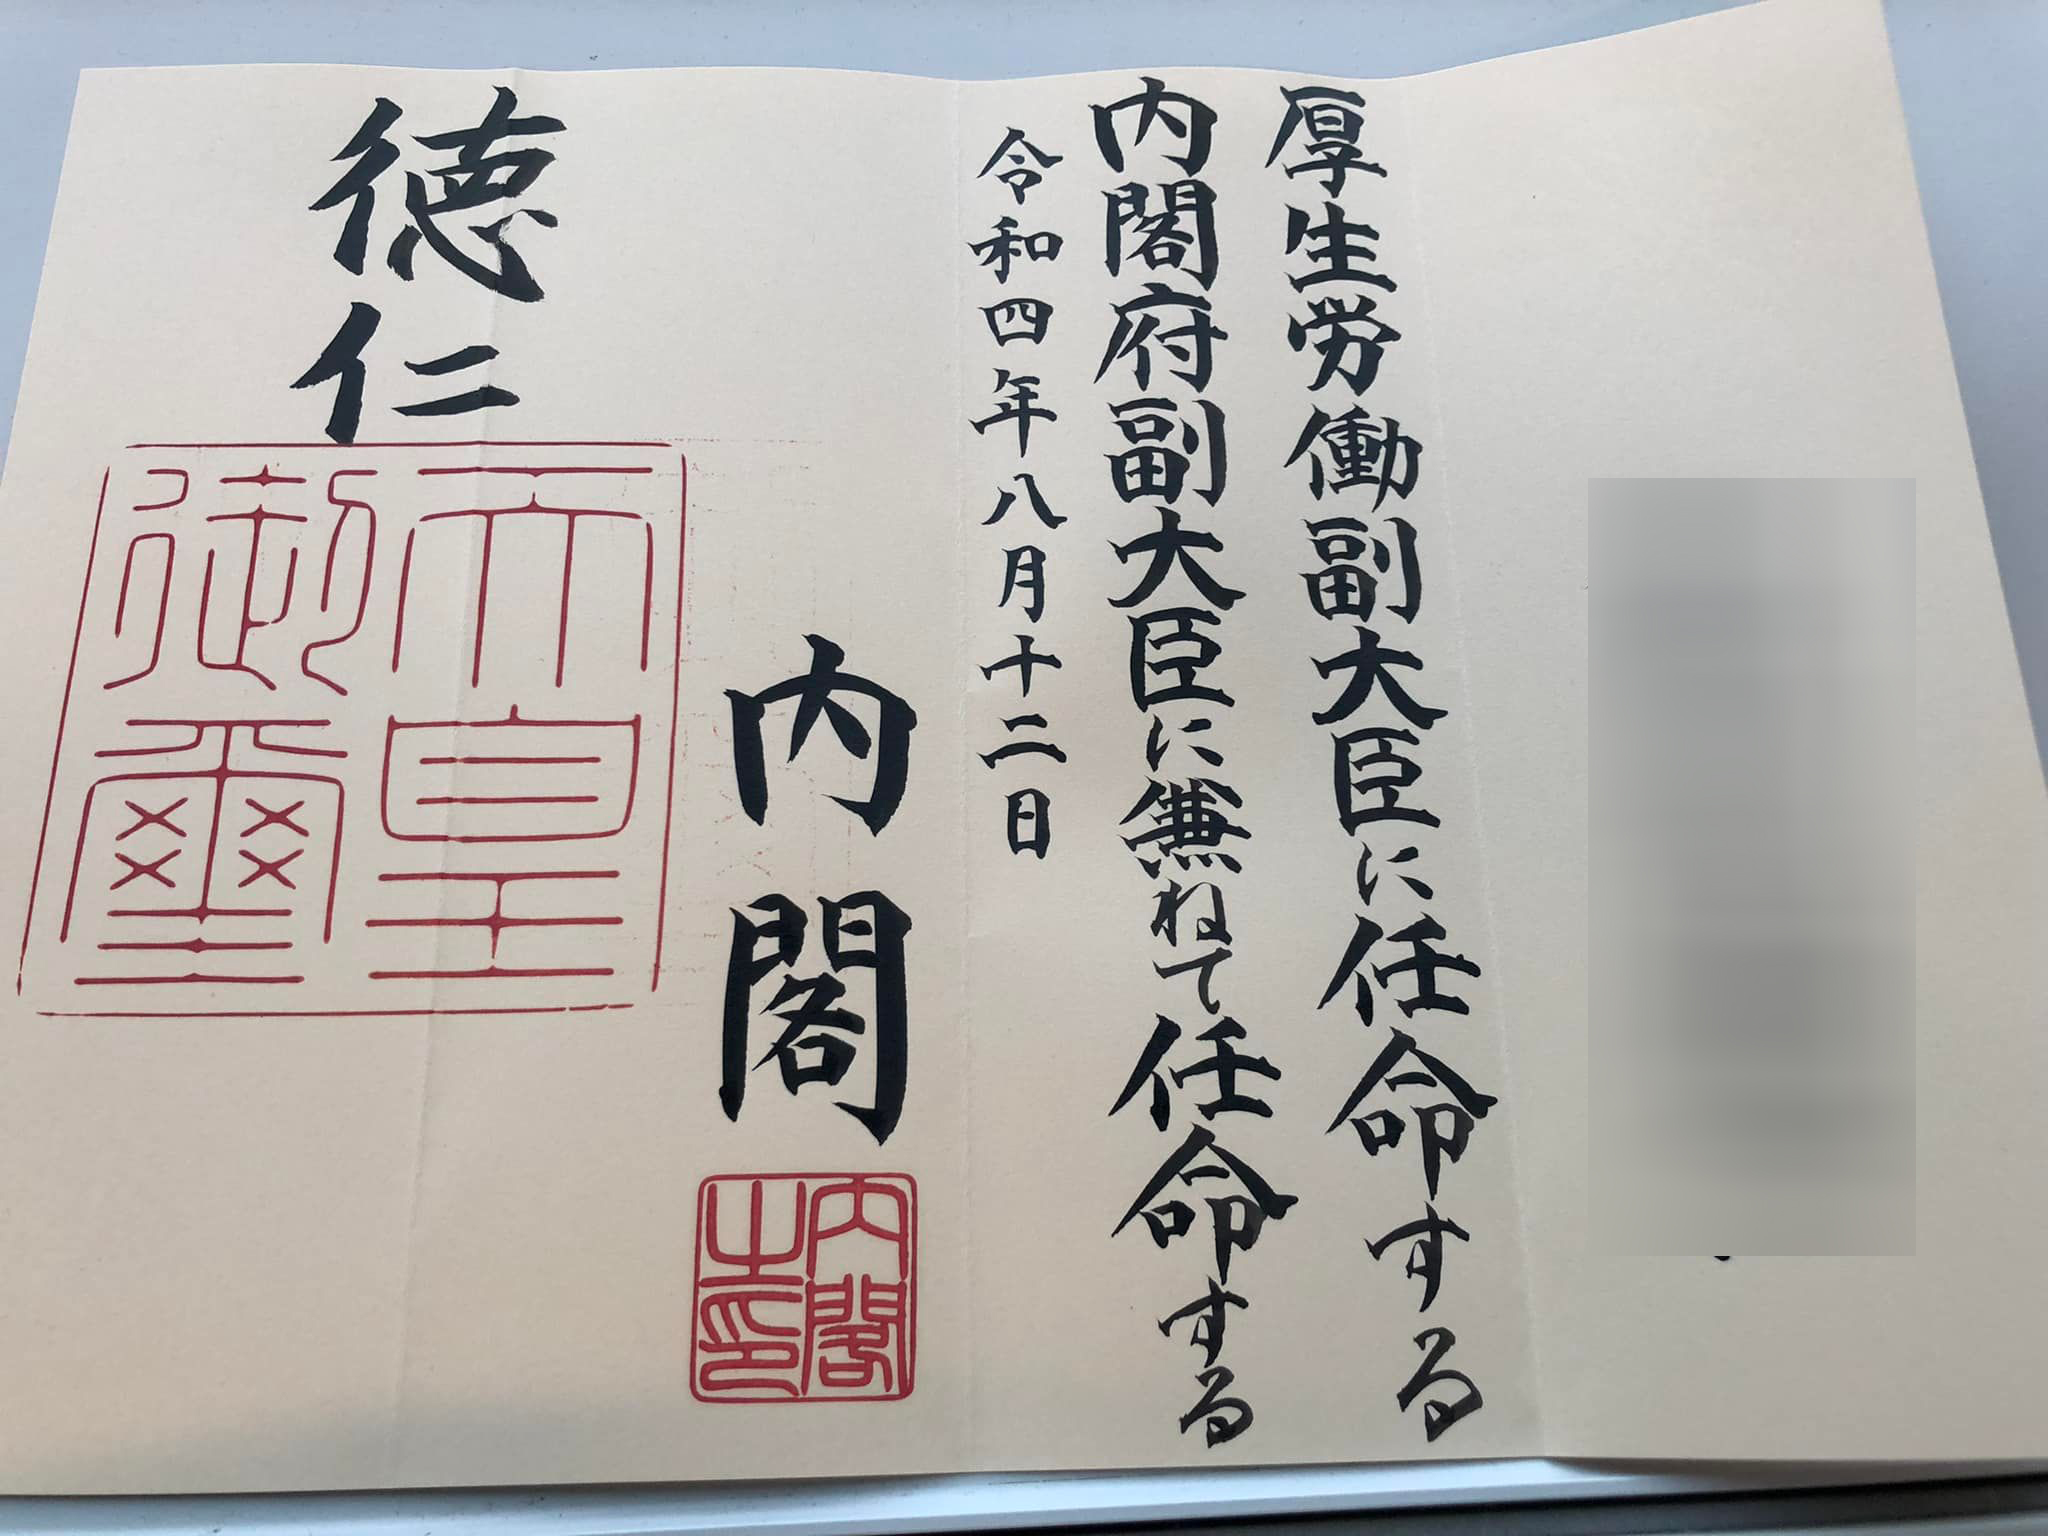 厚生労働副大臣に任命する
内閣府副大臣に兼ねて任命する
令和四年八月十二日
内閣
内閣之印
徳仁
天皇御璽